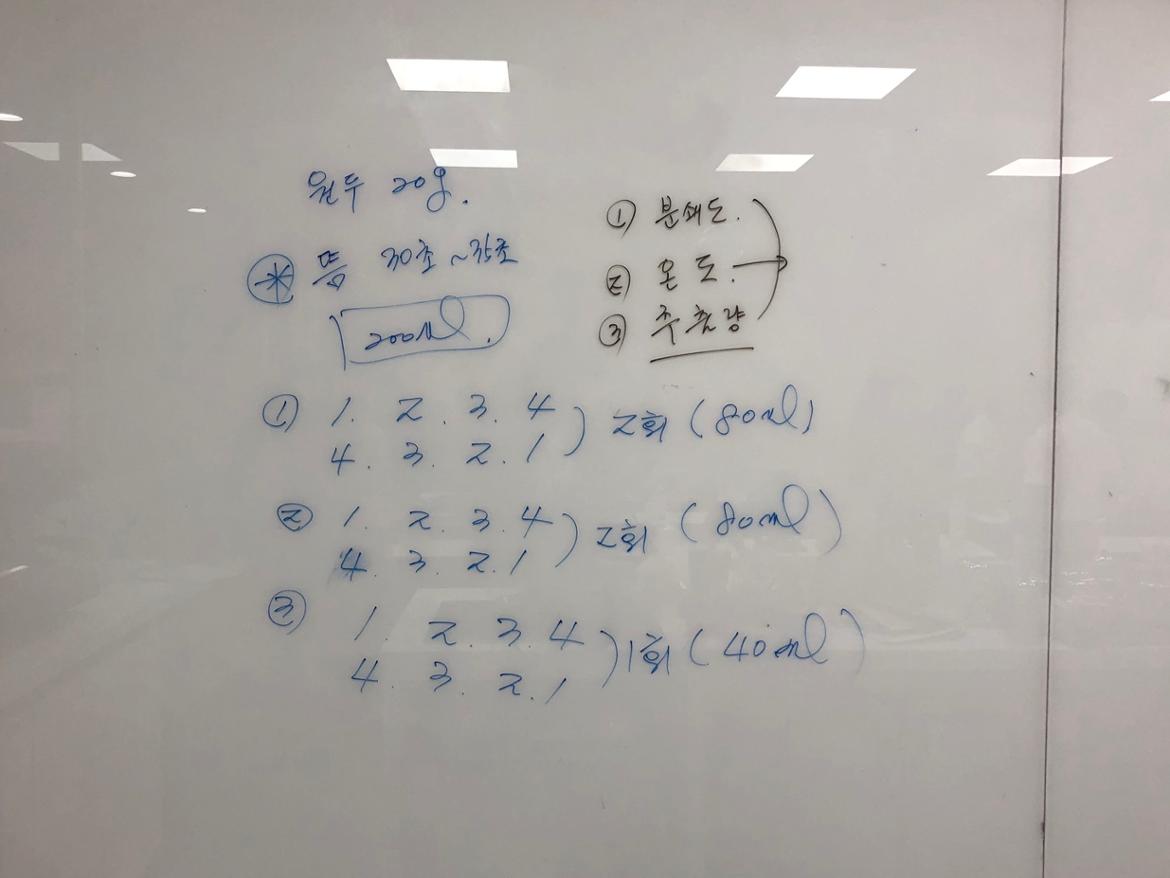 원두 20g.
* 뜸 30초 ~35초
200ml.
① 분쇄도.
② 온도.
③ 추출량
① 1. 2. 3. 4
4. 3. 2. 1 ) 2회 (80ml)
② 1. 2. 3. 4
4. 3. 2. 1 ) 2회 (80ml)
③ 1. 2. 3. 4
4. 3. 2. 1 ) 1회 (40ml)